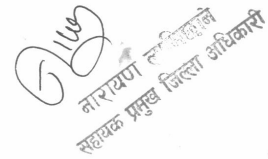 नारायण
सहायक प्रमुख जिल्ला अधिकारी